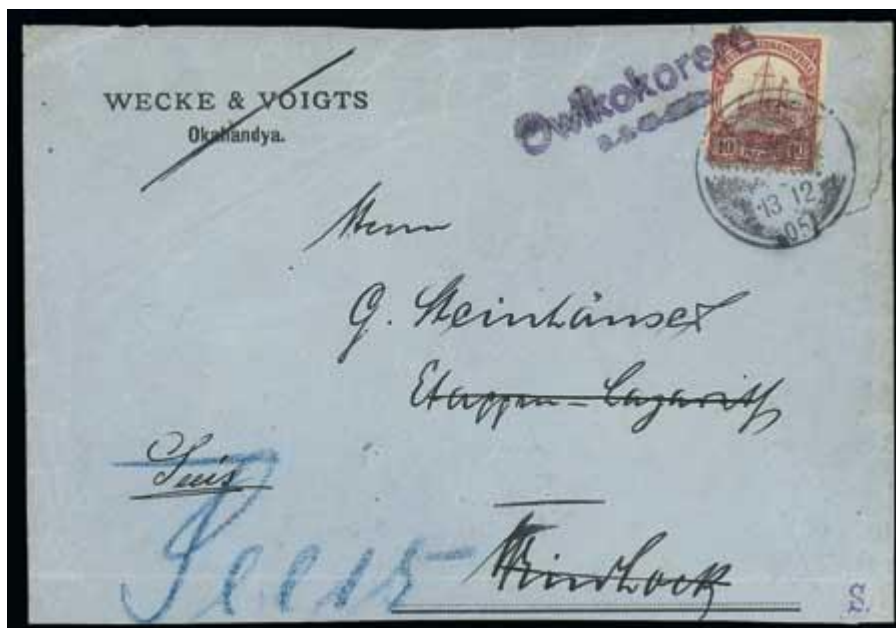 WECKE & VOIGTS
Okahandya.
Owikokorero
10 10
13 12
05
Herrn
G. Steinhäuser
Etappen-Lazarett
Seeis
Seeis
Windhoek